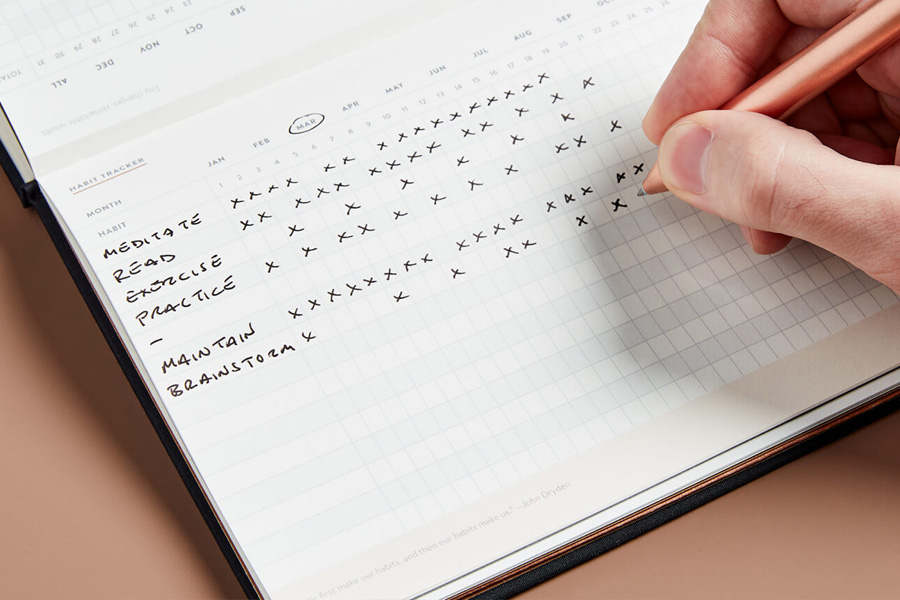 SEP
OCT
NOV
DEC
ALL
TOTAL 31 30 29 28 27 26 25 24 23
HABIT TRACKER
MONTH JAN FEB MAR APR MAY JUN JUL AUG SEP
HABIT 1 2 3 4 5 6 7 8 9 10 11 12 13 14 15 16 17 18 19 20 21 22 23 24 25 26
MEDITATE x x x x x x x x x x x x x x x x
READ
EXERCISE
PRACTICE
–
MAINTAIN
BRAINSTORM
first make our habits, and then our habits make us." –John Dryden